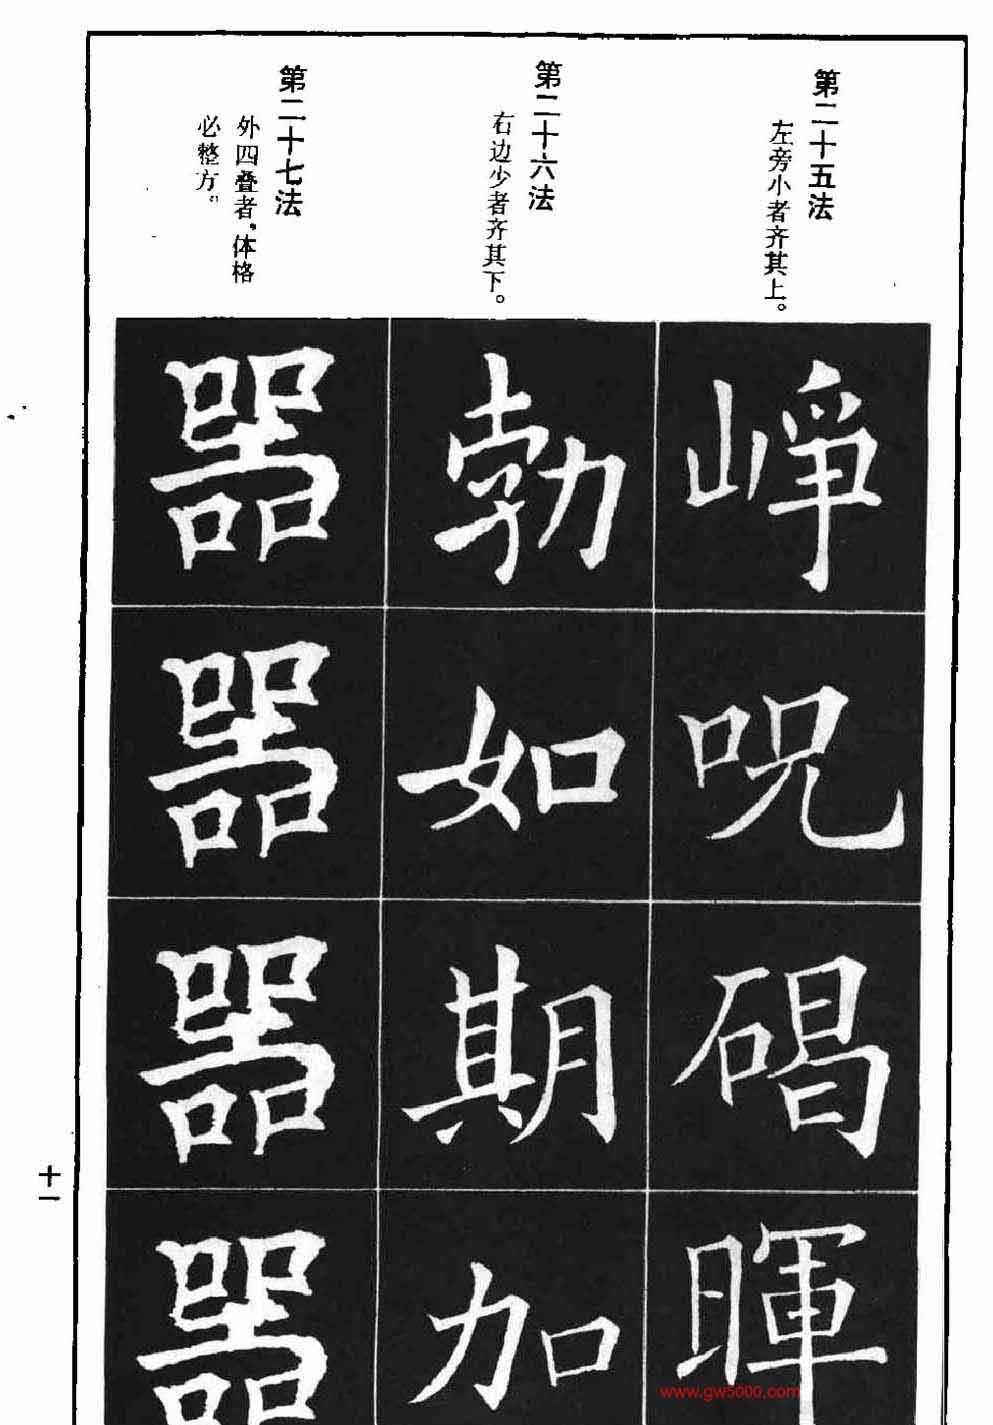 第二十五法
左旁小者齐其上。
崢呪碣暉
第二十六法
右边少者齐其下。
勃如期加
第二十七法
外四叠者，体格
必整方。
噐噐噐噐
十一
www.gw5000.com